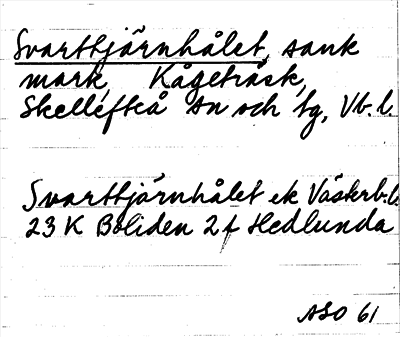 Svarttjärnhålet, sank
mark Kågeträsk,
Skellefteå sn och tg, Vb. l.
Svarttjärnhålet ek Västerb.l.
23 K Boliden 2 f Hedlunda
ASO 61